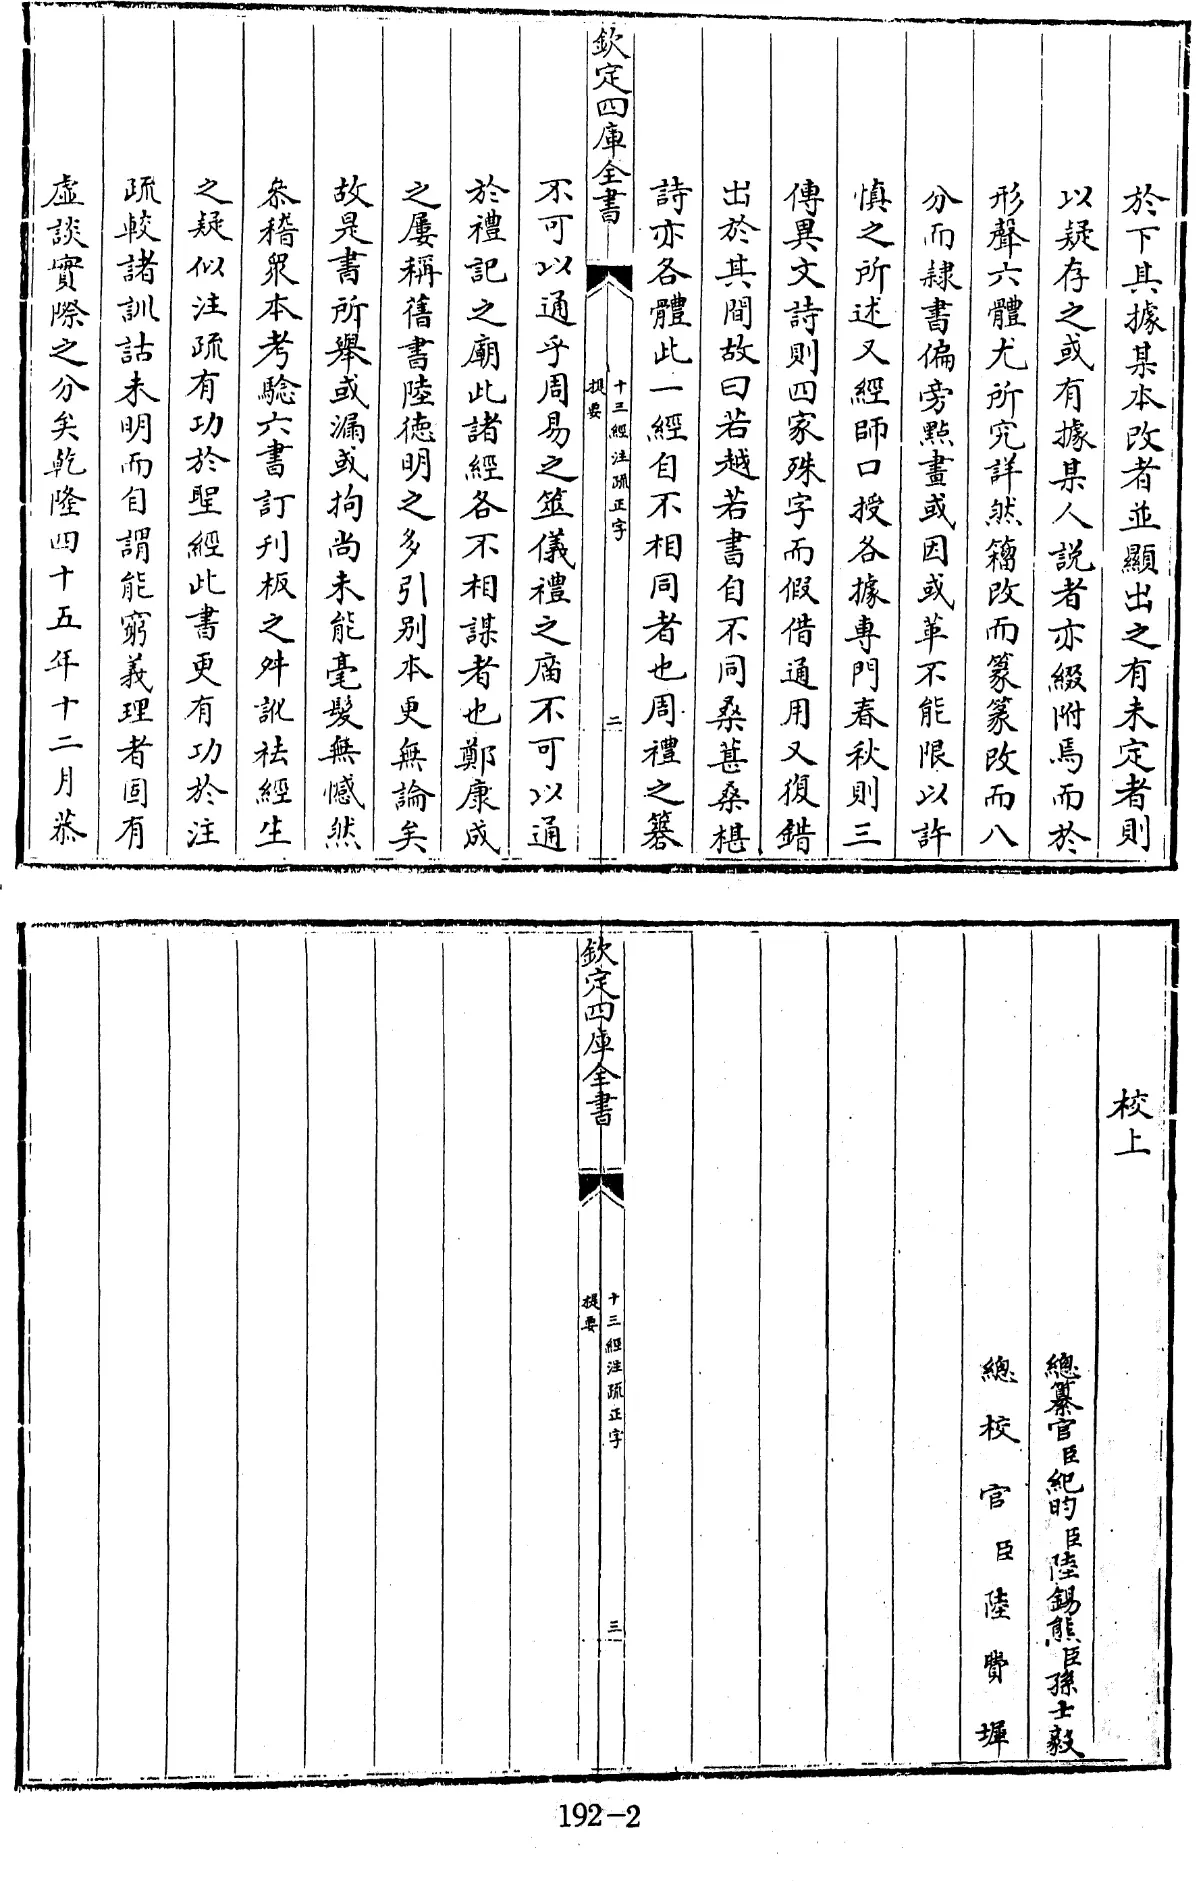 於下其據某本改者並顯出之有未定者則
以疑存之或有據某人説者亦綴附焉而於
形聲六體尤所究詳然籀改而篆篆改而八
分而隸書偏旁點畫或因或革不能限以許
慎之所述又經師口授各據專門春秋則三
傳異文詩則四家殊字而假借通用又復錯
出於其間故曰若越若書自不同桑葚桑椹
詩亦各體此一經自不相同者也周禮之簭
欽定四庫全書
十三經注疏正字
提要
二
不可以通乎周易之筮儀禮之庿不可以通
於禮記之廟此諸經各不相謀者也鄭康成
之屢稱舊書陸德明之多引别本更無論矣
故是書所舉或漏或拘尚未能毫髮無憾然
叅稽衆本考驗六書訂刋板之舛訛祛經生
之疑似注疏有功於聖經此書更有功於注
疏較諸訓詁未明而自謂能窮義理者固有
虚談實際之分矣乾隆四十五年十二月恭
校上
總纂官臣紀昀臣陸錫熊臣孫士毅
總校官臣陸費墀
欽定四庫全書
十三經注疏正字
提要
三
192-2